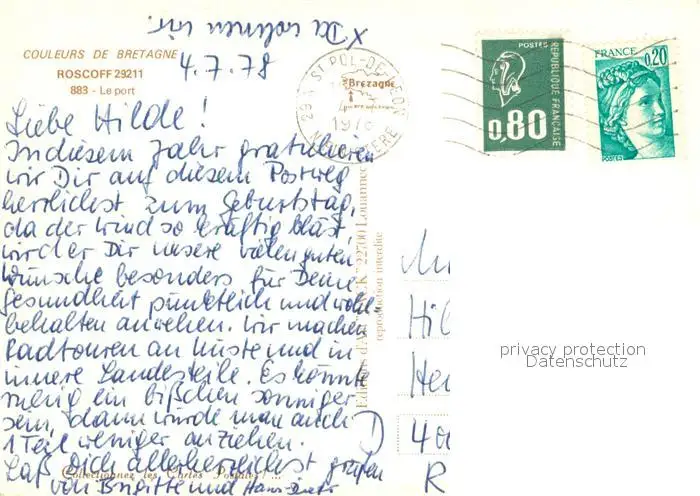 x Da wohnen wir.
COULEURS DE BRETAGNE
ROSCOFF 29211
883 - Le port
4.7.78
Liebe Hilde!
In diesem Jahr gratulieren
wir Dir auf diesem Postweg
herzlichst zum Geburtstag,
da der Wind so kräftig bläst,
wird er Dir unsere vielen guten
Wünsche besonders für Deine
Gesundheit pünktlich und wohl-
behalten anwehen. Wir machen
Radtouren an Küste und in
innere Landesteile. Es könnte
wenig ein bißchen sonniger
sein, dann würde man auch
1 Teil weniger anziehen.
Laß Dich allerherzlichst grüßen
von Brigitte und Hans
Collectionnez les Cartes Postales! ...
ST POL-DE-LEON
Bretagne
POSTES
REPUBLIQUE FRANÇAISE
0,80
FRANCE
0,20
POSTES
22700 Louannec
reproduction interdite
Hil
He
40
R
privacy protection
Datenschutz